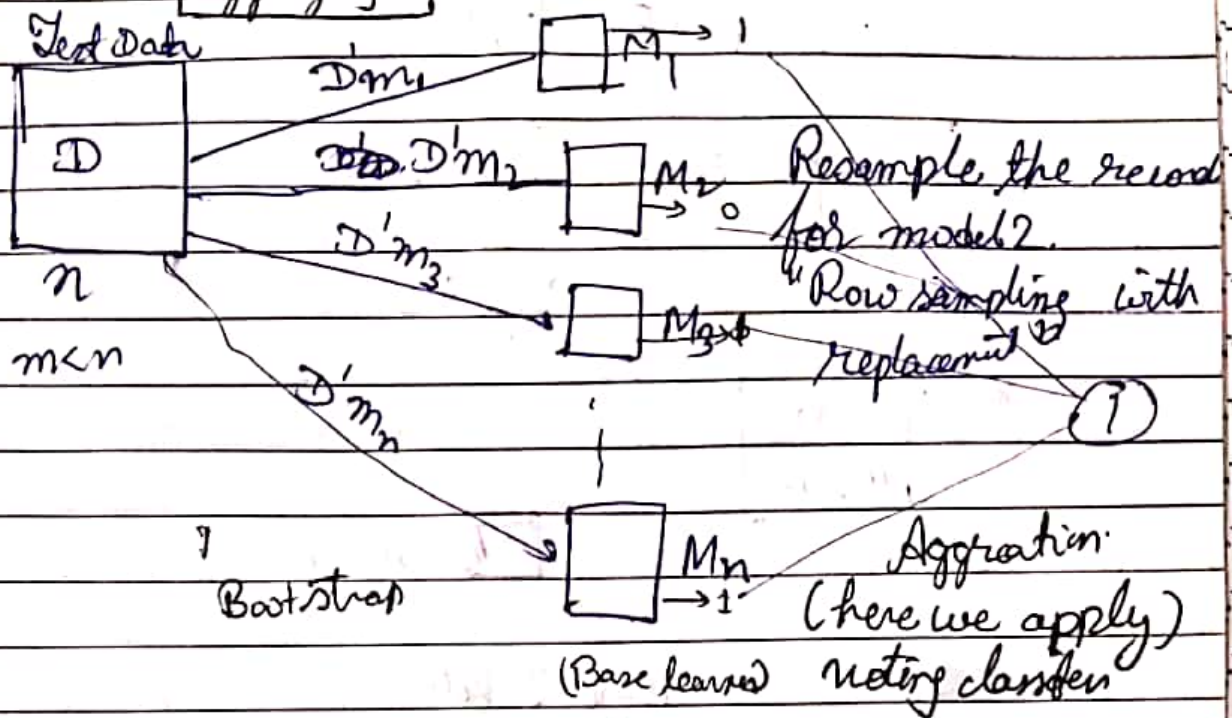 Test Data
D
n
m<n
D'm1
D'm2
D'm3
D'mn
M1 → 1
M2 → 0
M3 → 1
Mn → 1
Resample the record
for model 2.
"Row sampling with
replacement"
1
Bootstrap
(Base learner)
Aggreation
(here we apply)
voting classifier